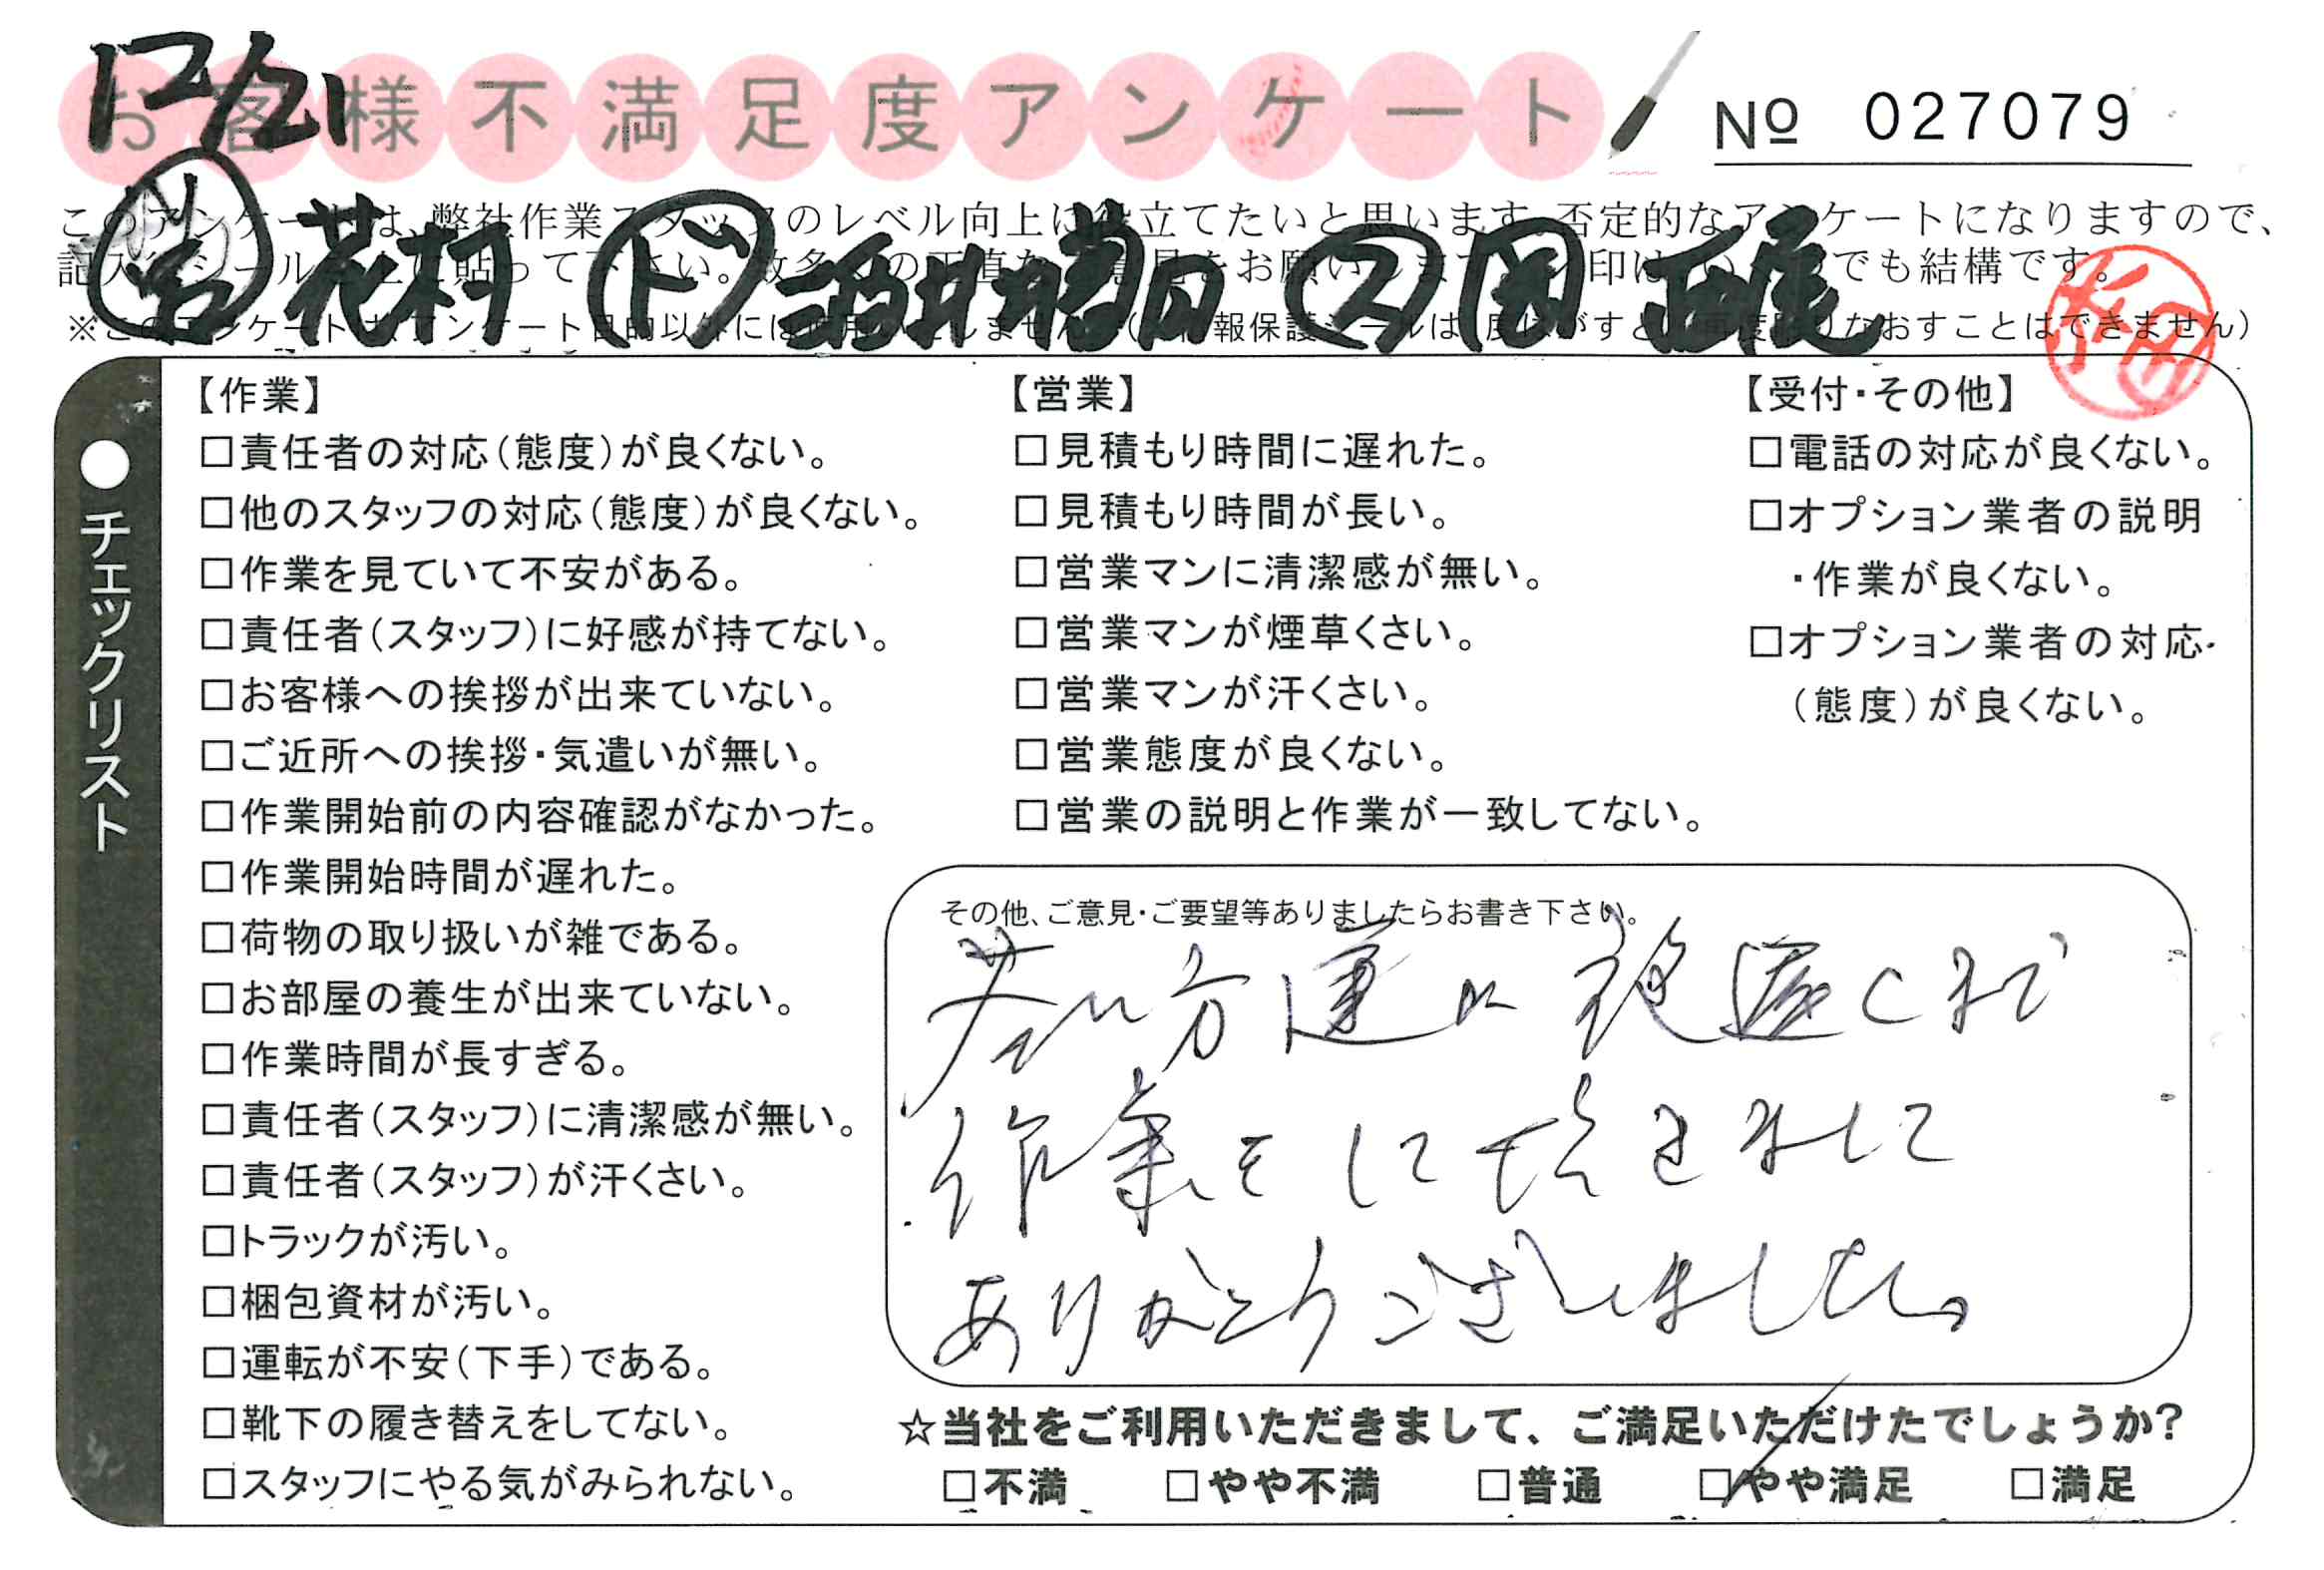 12/21
お客様不満足度アンケート
Nº 027079
このアンケートは、弊社作業スタッフのレベル向上に役立てたいと思います。否定的なアンケートになりますので、
営 花村 ド 酒井 ス 正尾
でも結構です。
【作業】
□責任者の対応(態度)が良くない。
□他のスタッフの対応(態度)が良くない。
□作業を見ていて不安がある。
□責任者(スタッフ)に好感が持てない。
□お客様への挨拶が出来ていない。
□ご近所への挨拶・気遣いが無い。
□作業開始前の内容確認がなかった。
□作業開始時間が遅れた。
□荷物の取り扱いが雑である。
□お部屋の養生が出来ていない。
□作業時間が長すぎる。
□責任者(スタッフ)に清潔感が無い。
□責任者(スタッフ)が汗くさい。
□トラックが汚い。
□梱包資材が汚い。
□運転が不安(下手)である。
□靴下の履き替えをしてない。
□スタッフにやる気がみられない。
【営業】
□見積もり時間に遅れた。
□見積もり時間が長い。
□営業マンに清潔感が無い。
□営業マンが煙草くさい。
□営業マンが汗くさい。
□営業態度が良くない。
□営業の説明と作業が一致してない。
【受付・その他】
□電話の対応が良くない。
□オプション業者の説明
・作業が良くない。
□オプション業者の対応
(態度)が良くない。
●チェックリスト
その他、ご意見・ご要望等ありましたらお書き下さい。
若い方達に夜遅くまで
作業をして頂きまして
ありがとうございました。
☆当社をご利用いただきまして、ご満足いただけたでしょうか?
□不満 □やや不満 □普通 □やや満足 □満足